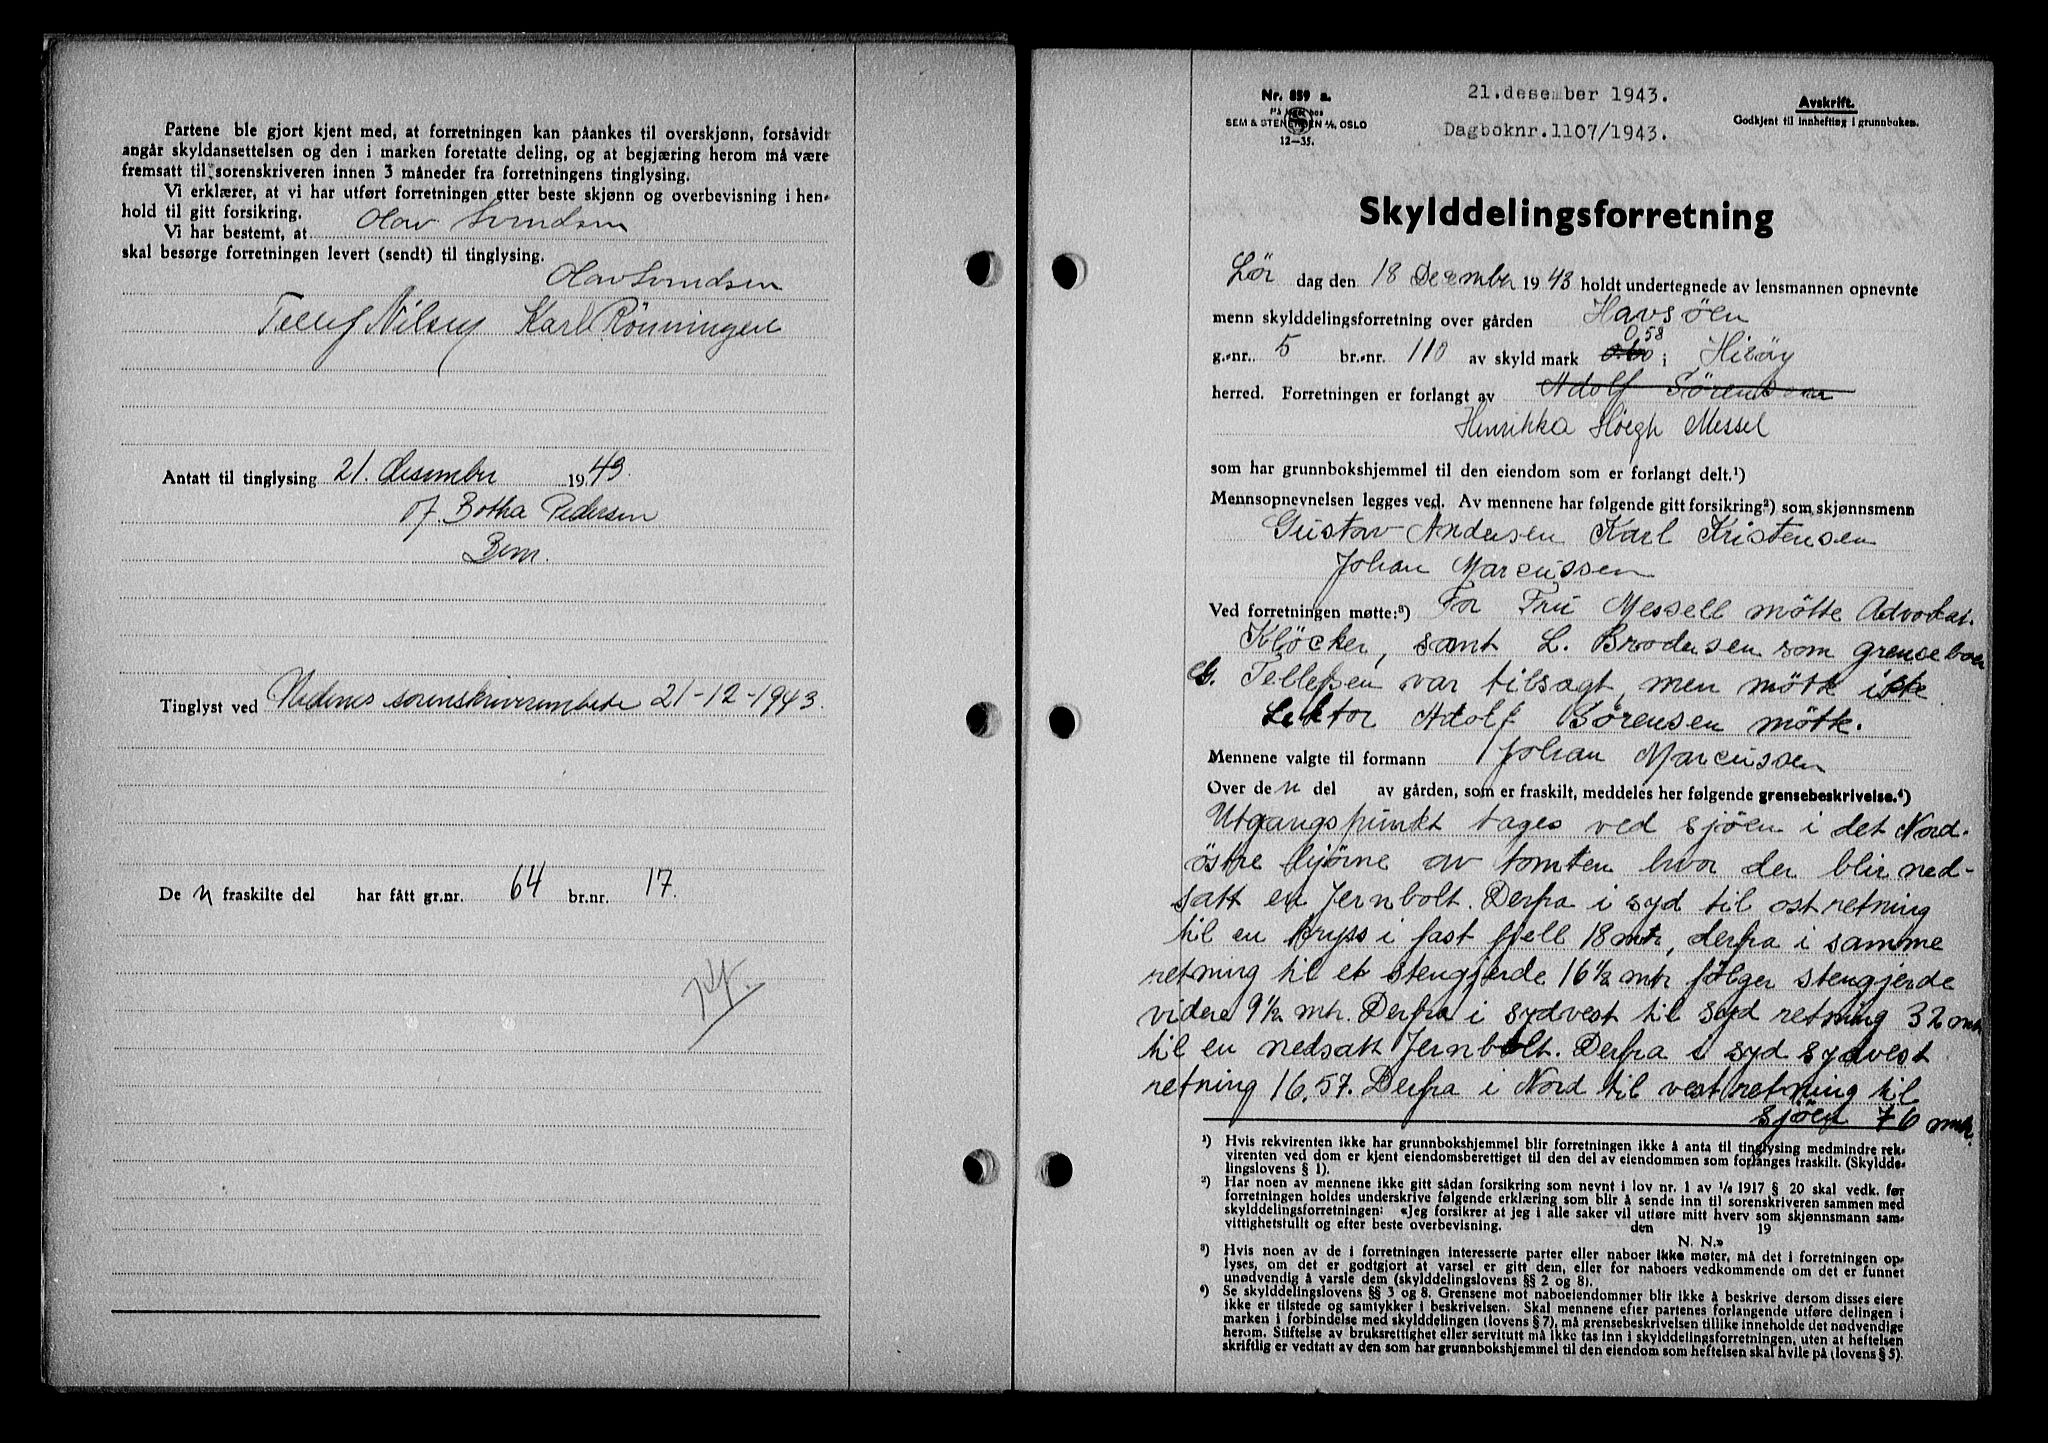 Partene ble gjort kjent med, at forretningen kan påankes til overskjønn, forsåvidt
angår skyldansettelsen og den i marken foretatte deling, og at begjæring herom må være
fremsatt til sorenskriveren innen 3 måneder fra forretningens tinglysing.
Vi erklærer, at vi har utført forretningen etter beste skjønn og overbevisning i hen-
hold til gitt forsikring.
Vi har bestemt, at Olav Svendsen
skal besørge forretningen levert (sendt) til tinglysing.
Olav Svendsen
Nilsen Karl Rönningen
Antatt til tinglysing 21. desember 1943.
Botha Pedersen
Tinglyst ved Nedenes sorenskriverembete 21-12-1943.
De n fraskilte del har fått gr.nr. 64 br.nr. 17.
Nr. 859 a.
SEM & STENERSEN A/S, OSLO
12—35.
21.desember 1943.
Dagboknr.1107/1943.
Avskrift.
Godkjent til innhefting i grunnboken.
Skylddelingsforretning
Lör dag den 18 December 1943 holdt undertegnede av lensmannen opnevnte
menn skylddelingsforretning over gården Havsöen
0.58
g.-nr. 5 br.-nr. 110 av skyld mark 0.60 i Hisöy
herred. Forretningen er forlangt av Adolf Sörensen
Henrikka Höegh Messel
som har grunnbokshjemmel til den eiendom som er forlangt delt.¹)
Mennsopnevnelsen legges ved. Av mennene har følgende gitt forsikring²) som skjønnsmenn
Gustav Andersen Karl Kristensen
Johan Marcussen
Ved forretningen møtte:³) For Fru Messell mötte Advokat
Klöcker, samt L. Brodersen som grenseboer
G. Tellefsen var tilsagt, men mötte ikke
Lektor Adolf Sörensen mötte.
Mennene valgte til formann Johan Marcussen
Over de n del av gården, som er fraskilt, meddeles her følgende grensebeskrivelse.⁴)
Utgangspunkt tages ved sjöen i det Nord-
östre hjörne av tomten hvor der blir ned-
satt en Jernbolt. Derfra i syd til ost retning
til en kryss i fast fjell 18 mtr, derfra i samme
retning til et stengjerde 16½ mtr følger stengjerde
videre 9½ mtr. Derfra i sydvest til syd retning 32 mtr
til en nedsatt Jernbolt. Derfra i syd sydvest
retning 16,57. Derfra i Nord til vest retning til
sjöen 76 mtr.
¹) Hvis rekvirenten ikke har grunnbokshjemmel blir forretningen ikke å anta til tinglysing medmindre rek-
virenten ved dom er kjent eiendomsberettiget til den del av eiendommen som forlanges fraskilt. (Skyldde-
lingslovens § 1).
²) Har noen av mennene ikke gitt sådan forsikring som nevnt i lov nr. 1 av 1/6 1917 § 20 skal vedk. før
forretningen holdes underskrive følgende erklæring som blir å sende inn til sorenskriveren sammen med
skylddelingsforretningen: «Jeg forsikrer at jeg i alle saker vil utføre mitt hverv som skjønnsmann sam-
vittighetsfullt og efter beste overbevisning. den 19
N. N.»
³) Hvis noen av de i forretningen interesserte parter eller naboer ikke møter, må det i forretningen op-
lyses, om det er godtgjort at varsel er gitt dem, eller for naboers vedkommende om det er funnet
unødvendig å varsle dem (skylddelingslovens §§ 2 og 8).
⁴) Se skylddelingslovens §§ 3 og 8. Grensene mot naboeiendommer blir ikke å beskrive dersom disses eiere
ikke er tilstede og samtykker i beskrivelsen. Skal mennene efter partenes forlangende utføre delingen i
marken i forbindelse med skylddelingen (lovens § 7), må grensebeskrivelsen tillike inneholde det nødvendige
herom. Stiftelse av bruksrettighet eller servitutt må ikke tas inn i skylddelingsforretningen, uten at heftelsen
skriftlig er vedtatt av den som har grunnbokshjemmel til den eiendom som heftelsen skal hvile på (lovens § 5).